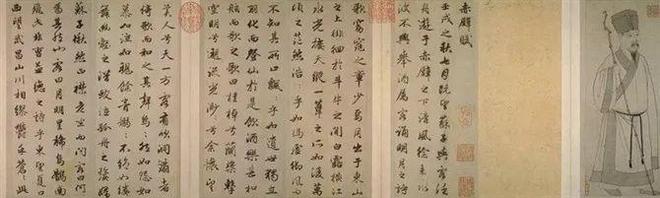 赤壁賦
壬戌之秋七月既望蘇子與客泛
舟遊于赤壁之下清風徐來水
波不興舉酒屬客誦明月之詩
歌窈窕之章少焉月出于東山
之上徘徊於斗牛之間白露橫江
水光接天縱一葦之所如凌萬
頃之茫然浩〻乎如馮虛御風而
不知其所止飄〻乎如遺世獨立
羽化而登仙於是飲酒樂甚扣
舷而歌之歌曰桂棹兮蘭槳擊
空明兮泝流光渺〻兮余懷望
美人兮天一方客有吹洞簫者
倚歌而和之其聲嗚〻然如怨如
慕如泣如訴餘音嫋〻不絕如縷
舞幽壑之潛蛟泣孤舟之嫠婦
蘇子愀然正襟危坐而問客曰何
為其然也客曰月明星稀烏鵲南
飛此非曹孟德之詩乎東望夏口
西望武昌山川相繆鬱乎蒼〻此